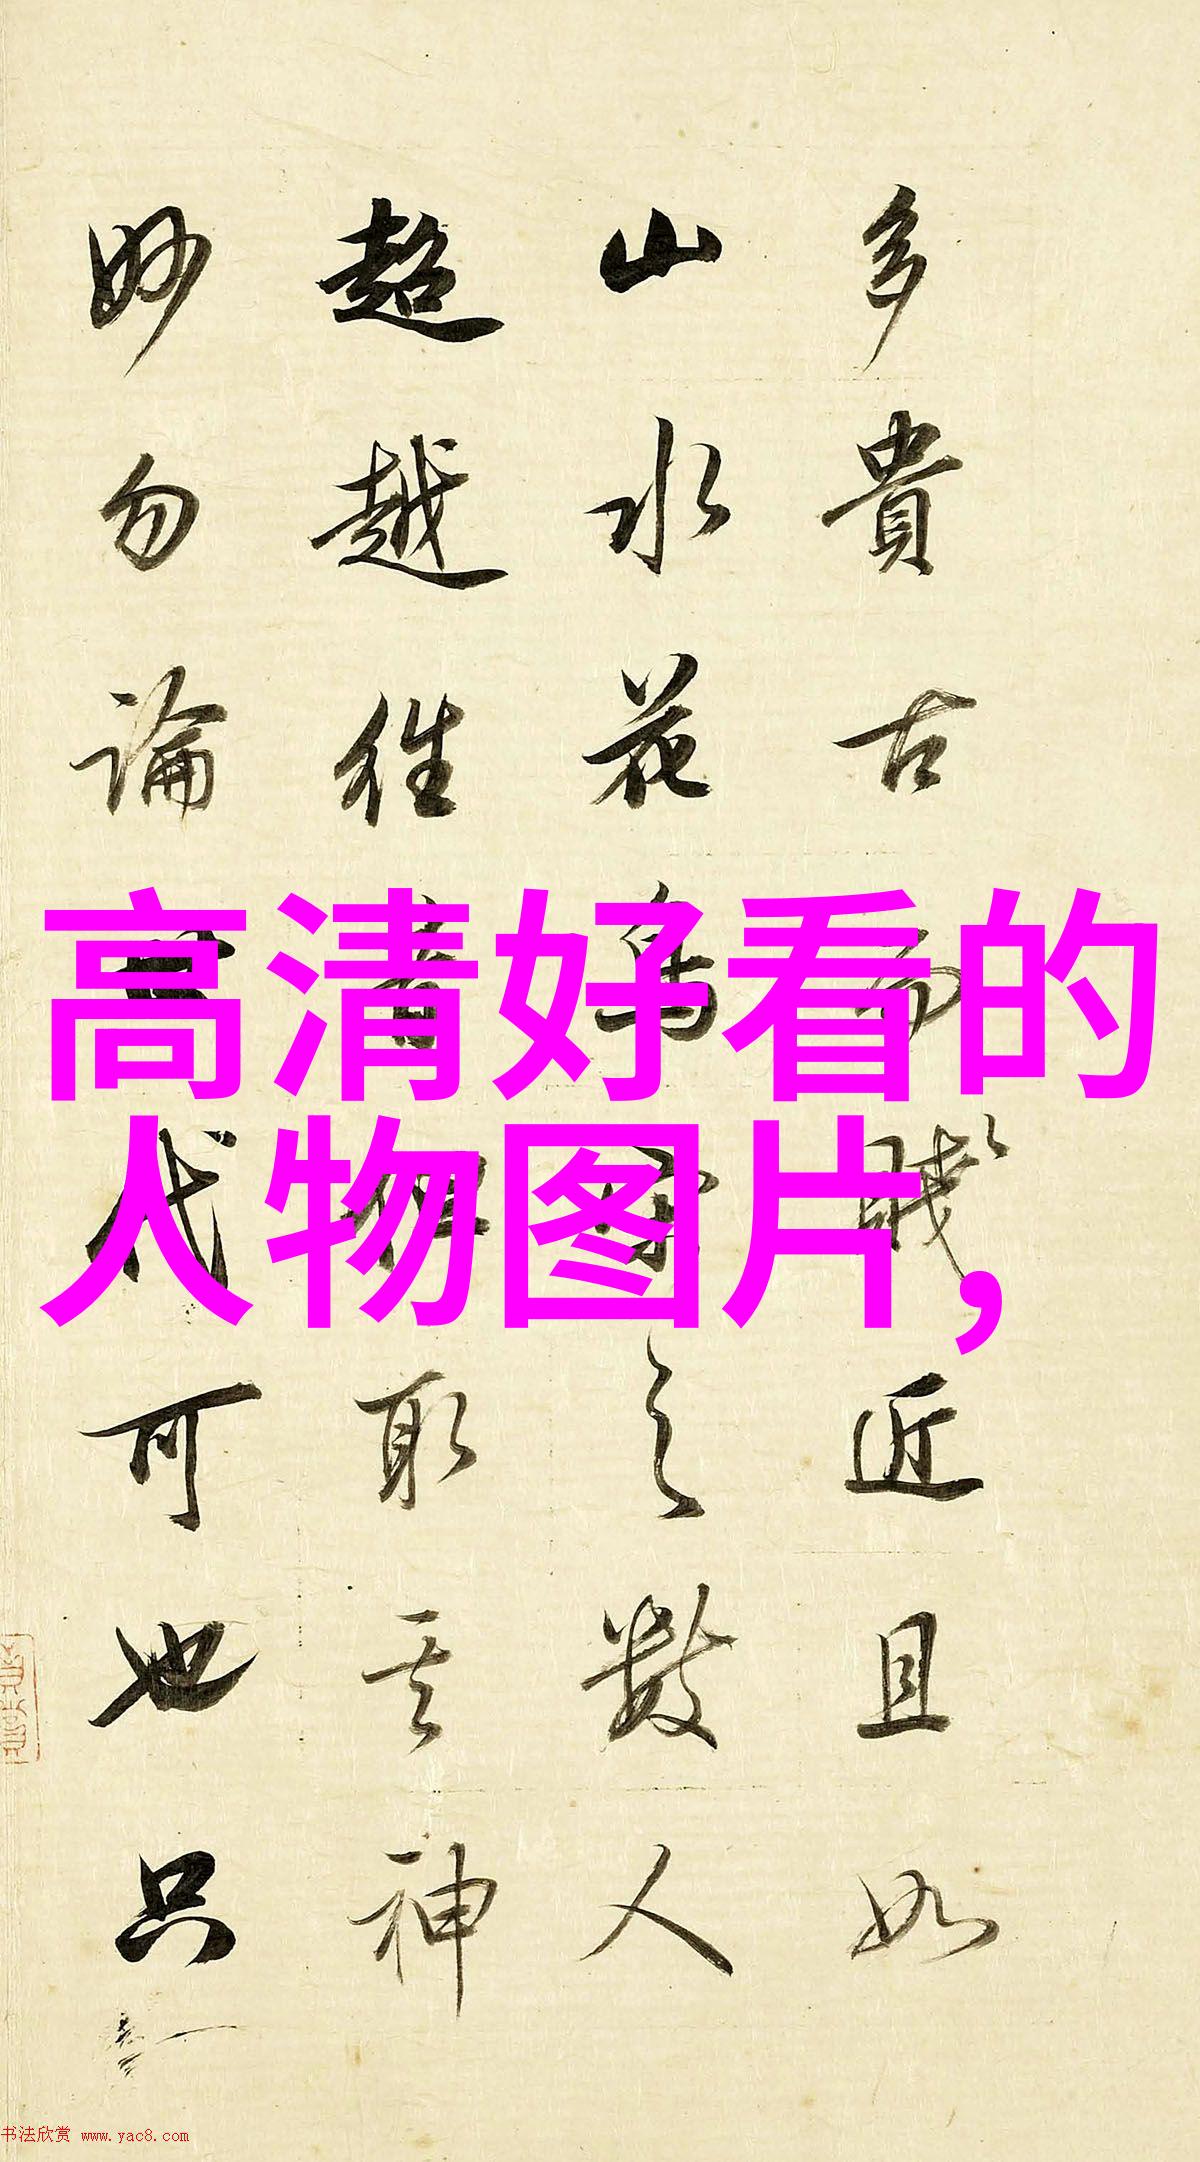 多貴古而賤近且如
山水花鳥
之數人
超越往者
取其神
妙勿論
代可也只
高清好看的
人物图片,
书法欣赏 www.yac8.com